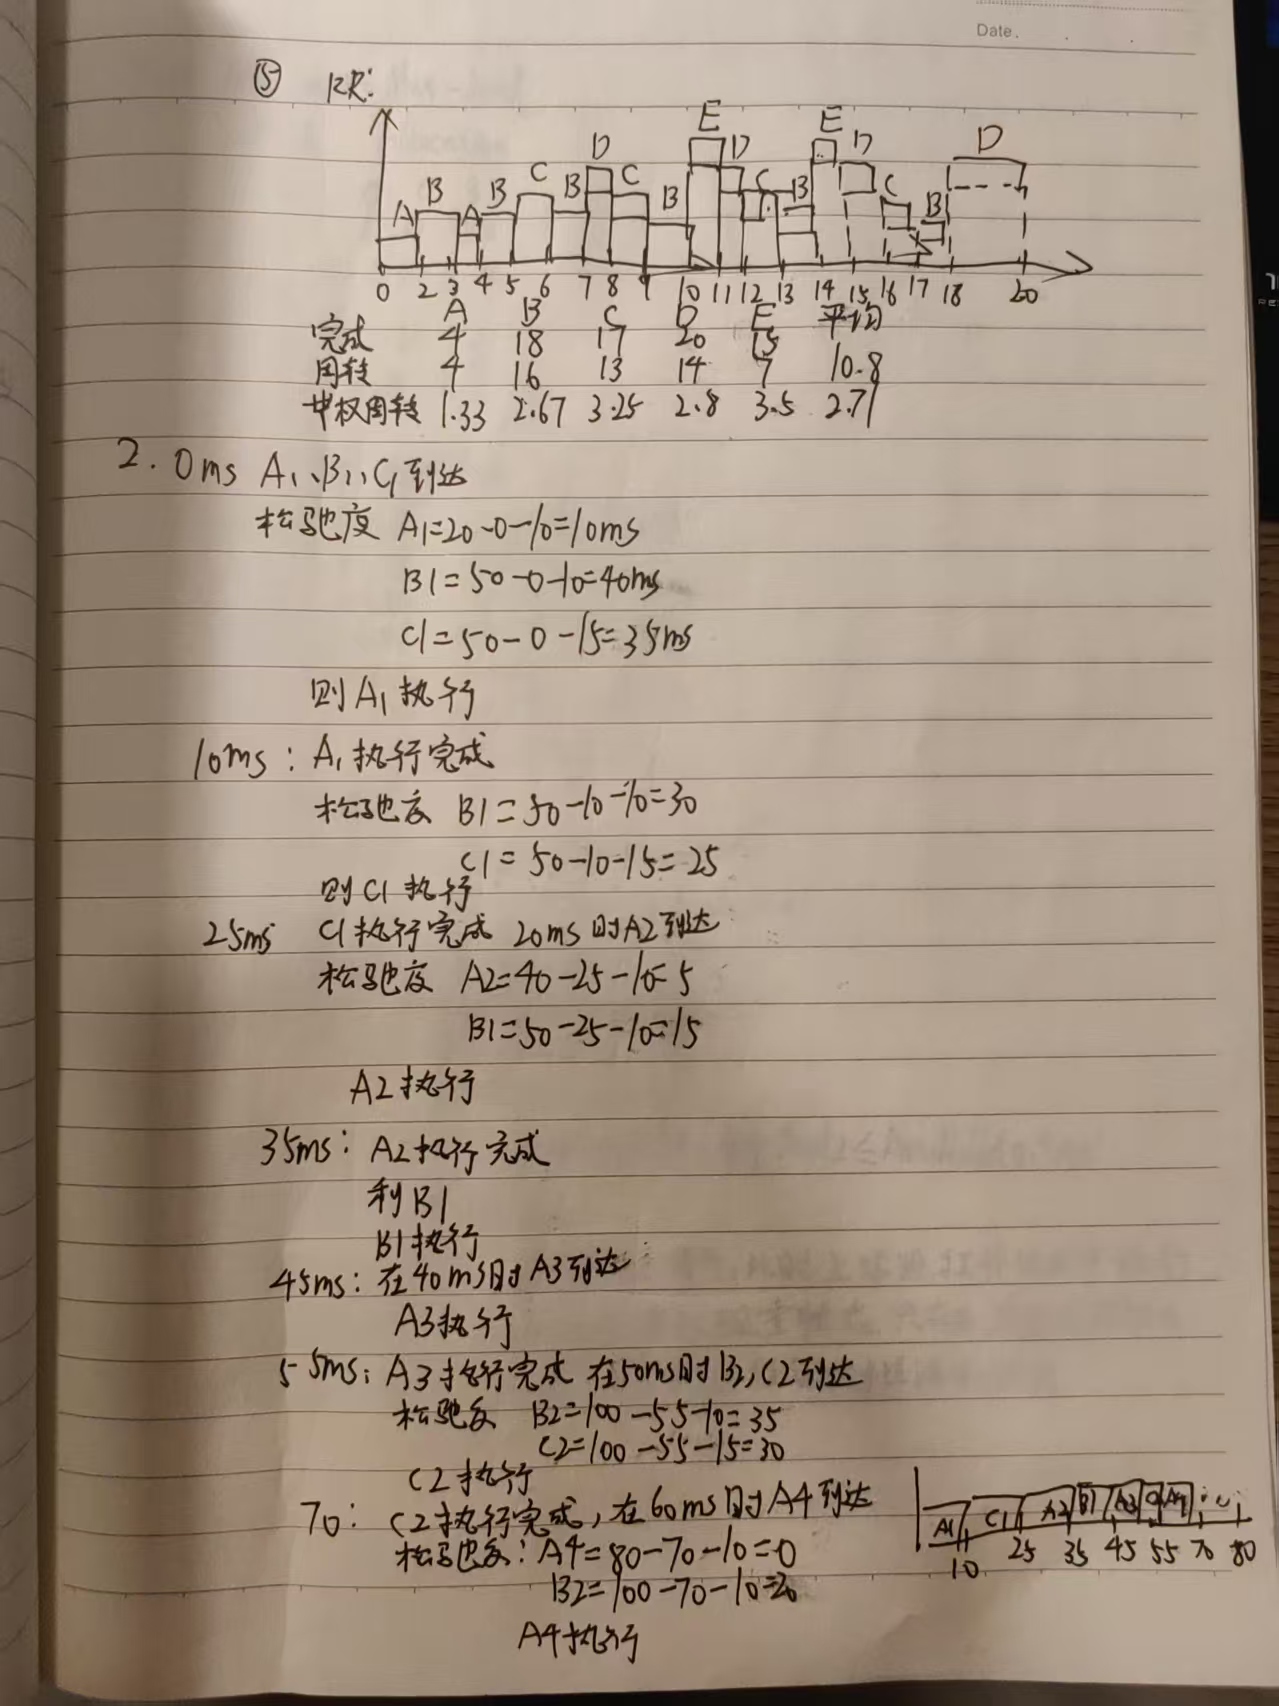 Date.
⑤ RR:
E E
D D D D
B B C B C B C B C B
A A
0 2 3 4 5 6 7 8 9 10 11 12 13 14 15 16 17 18 20
A B C D E 平均
完成 4 18 17 20 15
周转 4 16 13 14 7 10.8
带权周转 1.33 2.67 3.25 2.8 3.5 2.71
2. 0ms A₁、B₁、C₁到达
松弛度 A1=20-0-10=10ms
B1=50-0-10=40ms
C1=50-0-15=35ms
则A₁执行
10ms: A₁执行完成
松弛度 B1=50-10-10=30
C1=50-10-15=25
则C1执行
25ms C1执行完成 20ms时A2到达
松弛度 A2=40-25-10=5
B1=50-25-10=15
A2执行
35ms: A2执行完成
利B1
B1执行
45ms: 在40ms时A3到达
A3执行
55ms: A3执行完成 在50ms时B2,C2到达
松弛度 B2=100-55-10=35
C2=100-55-15=30
C2执行
70: C2执行完成,在60ms时A4到达
松弛度: A4=80-70-10=0
B2=100-70-10=20
A4执行
A1 C1 A2 B1 A3 A4
10 25 35 45 55 70 80